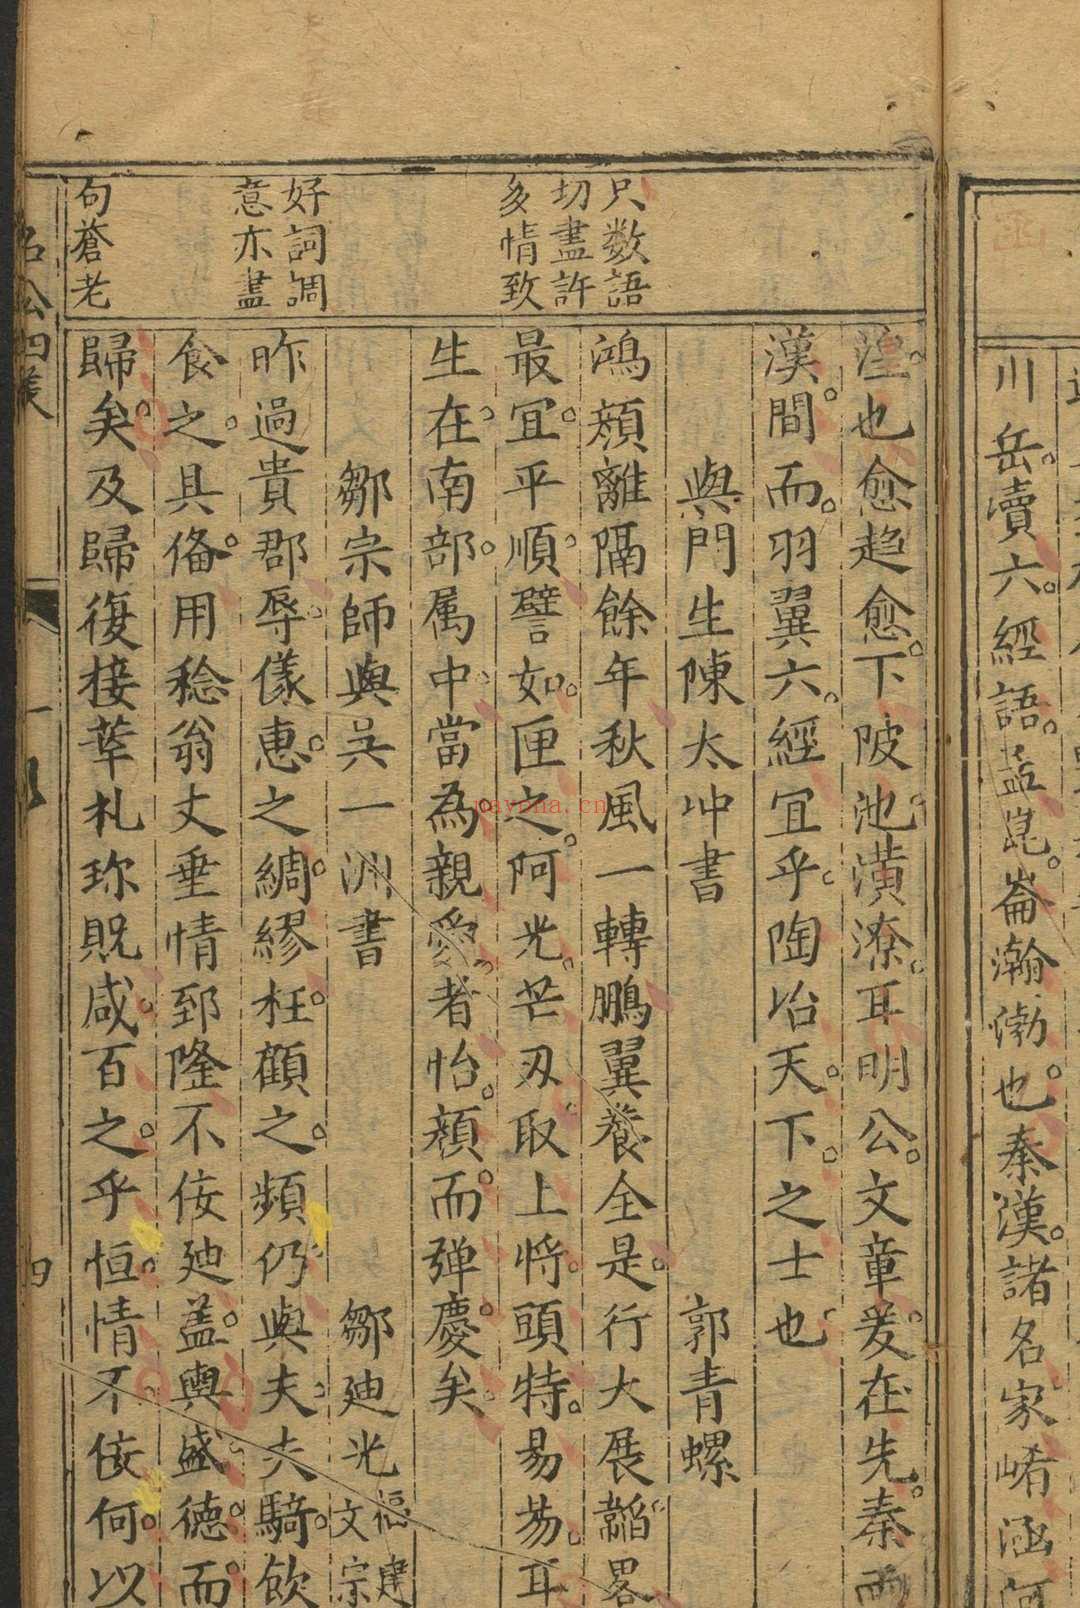 川岳瀆六經語孟崑崙瀚渤也秦漢諸名家崤涵河
只數語
切盡許
多情致
好詞調
意亦盡
句蒼老
湟也愈趋愈下陂池潢潦耳明公文章爰在先秦兩
漢間而羽翼六經宜乎陶冶天下之士也
與門生陳太冲書 郭青螺
鴻顏離隔餘年秋風一轉鵬翼養全是行大展韜畧
最宜平順譬如匣之阿光芒刃取上將頭特易易耳
生在南部属中當為親愛者怡顏而弹慶矣
鄒宗師與吴一洲書 鄒廸光 福建文宗
昨過貴郡辱儀惠之綢繆枉顧之頻仍與夫夫騎飲
食之具俻用稔翁丈垂情郅隆不佞廸盖輿盛德而
歸矣及歸復接華札珎貺咸百之乎恒情不佞何以
名公四叢
四
payona.cn